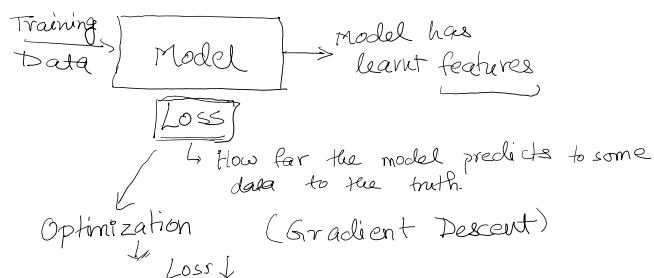 Training
Data
Model
Model has
learnt features
Loss
↳ How far the model predicts to some
data to the truth.
Optimization (Gradient Descent)
Loss ↓